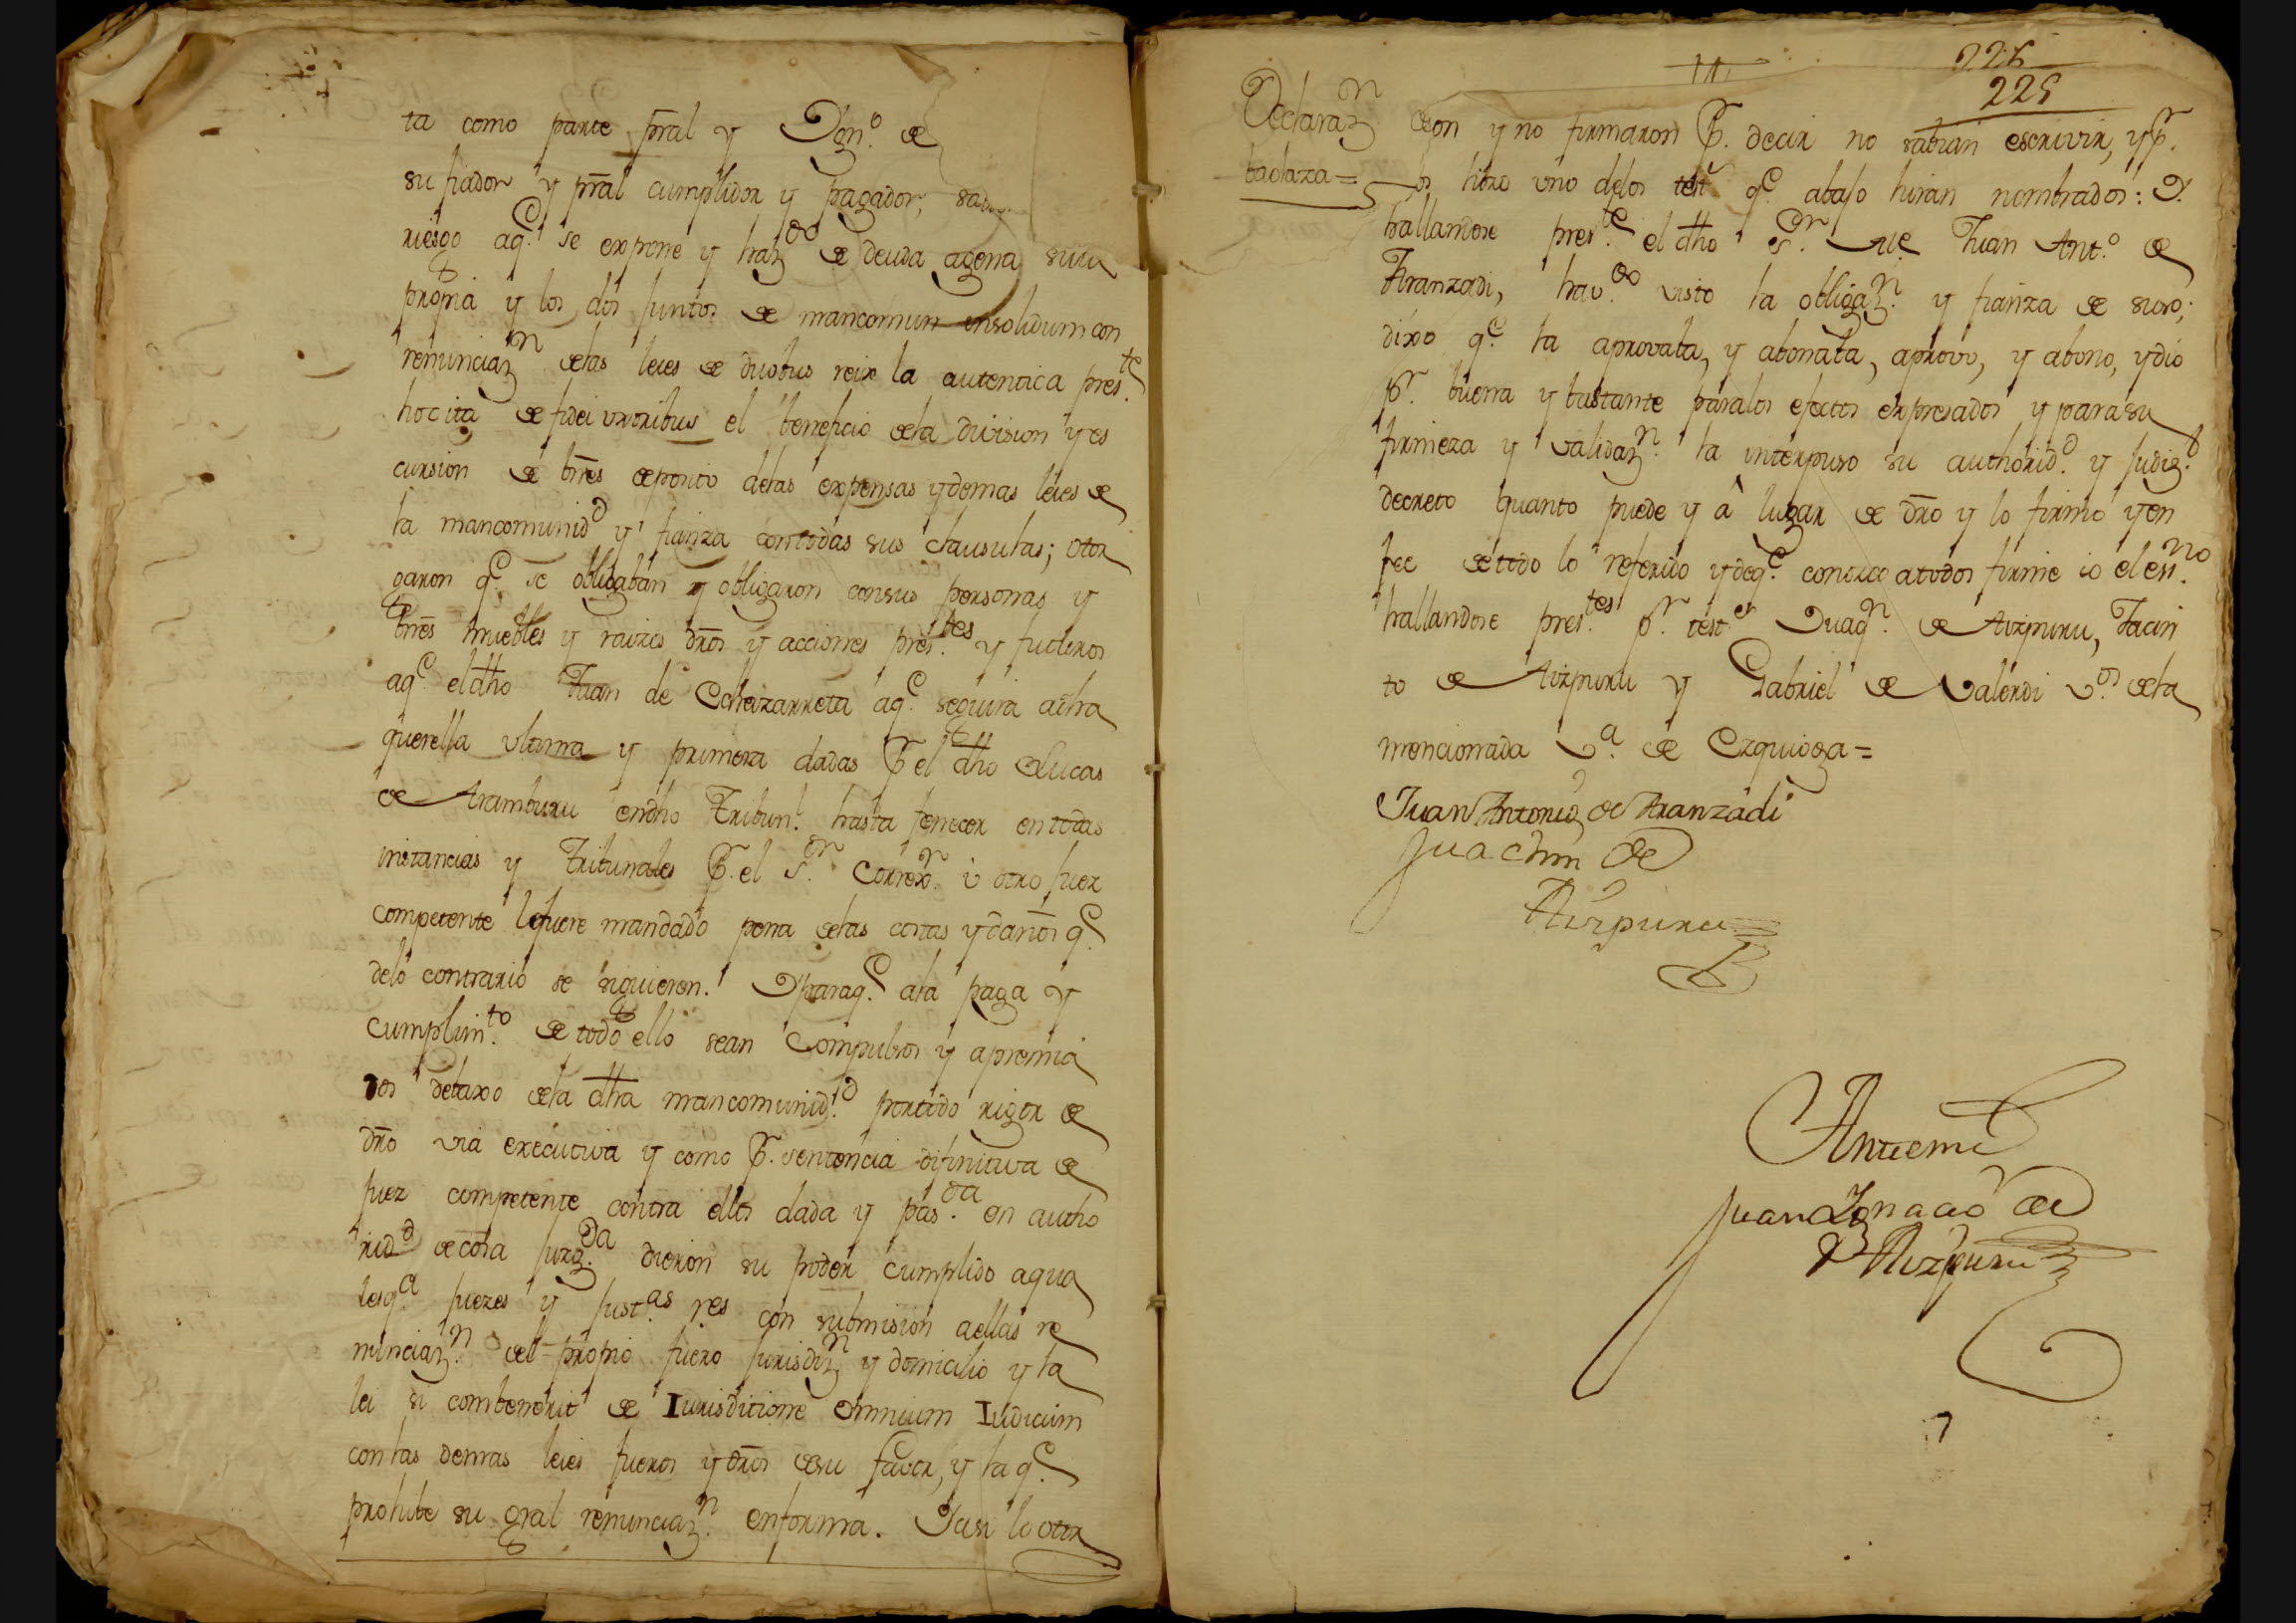 ta como parte pral y Dgnº de
su fiador y pral cumplidor y pagador,
riesgo aq.e se expone y haz.do de deuda agena suia
propria y los dos juntos de mancomun insolidum con
renunciaz.n delas leies de duobus reix la autentica pres.te
hoc ita de fidei uxoribus el beneficio dela division y es
cursion de bnes deposito delas expensas y demas leies de
la mancomunid.d y fianza con todas sus clausulas; otor
garon q.e se obligaban y obligaron con sus personas y
bnes muebles y raizes dros y acciones pres.tes y futuros
aq.e el dho Juan de Echeizarreta aq.e seguira a dha
querella ultima y primera dadas P.r el dho Lucas
de Aramburu en dho Tribun.l hasta fenecer en todas
instancias y Tribunales P.r el S.or Correx.r ù otro juez
competente le fuere mandado pena delas costas y daños q.e
delo contrario se siguieren. Y paraq.e ala paga y
cumplim.to de todo ello sean Compulsos y apremia
dos debaxo dela dha mancomunid.d por todo rigor de
dro via executiva y como P.r sentencia difinitiva de
juez competente contra ellos dada y pas.da en autho
rid.d de cosa juzg.da dieron su poder cumplido a qua
lesq.a juezes y just.as res con submision a ellas re
nunciaz.n del propio fuero jurisdiz.n y domicilio y la
lei si combenerit de Iurisditione omnium Iudicum
con las demas leies fueros y dros de su favor, y la q.e
prohibe su gral renunciaz.n en forma. Y asi lo otor
226
225
Declaraz.n
badaza=
on y no firmaron P.r decir no sabian escrivir, y p.r
os hizo uno delos test.s q.e abajo hiran nombrados: Y
hallandose pres.te el dho S.or Alc.e Juan Ant.o de
Aranzadi, hav.do visto la obligaz.n y fianza de suso;
dixo q.e la aprovaba, y abonaba, aprovo, y abono, y dio
P.r buena y bastante para los efectos expresados y para su
firmeza y validaz.n la interpuso su authorid.d y judiz.l
decreto quanto puede y â lugar de dro y lo firmó y en
fee de todo lo referido y deq.e conozco a todos firme io el ess.no
hallandose pres.tes p.r test.s Juaq.n de Aizpuru, Jacin
to de Aizpuru y Gabriel de Valerdi v.os dela
mencionada V.a de Ezquioga=
Juan Antonio de Aranzadi
Juachin de
Aizpuru
Antemi
Juan Ignacio de
Aizpuru